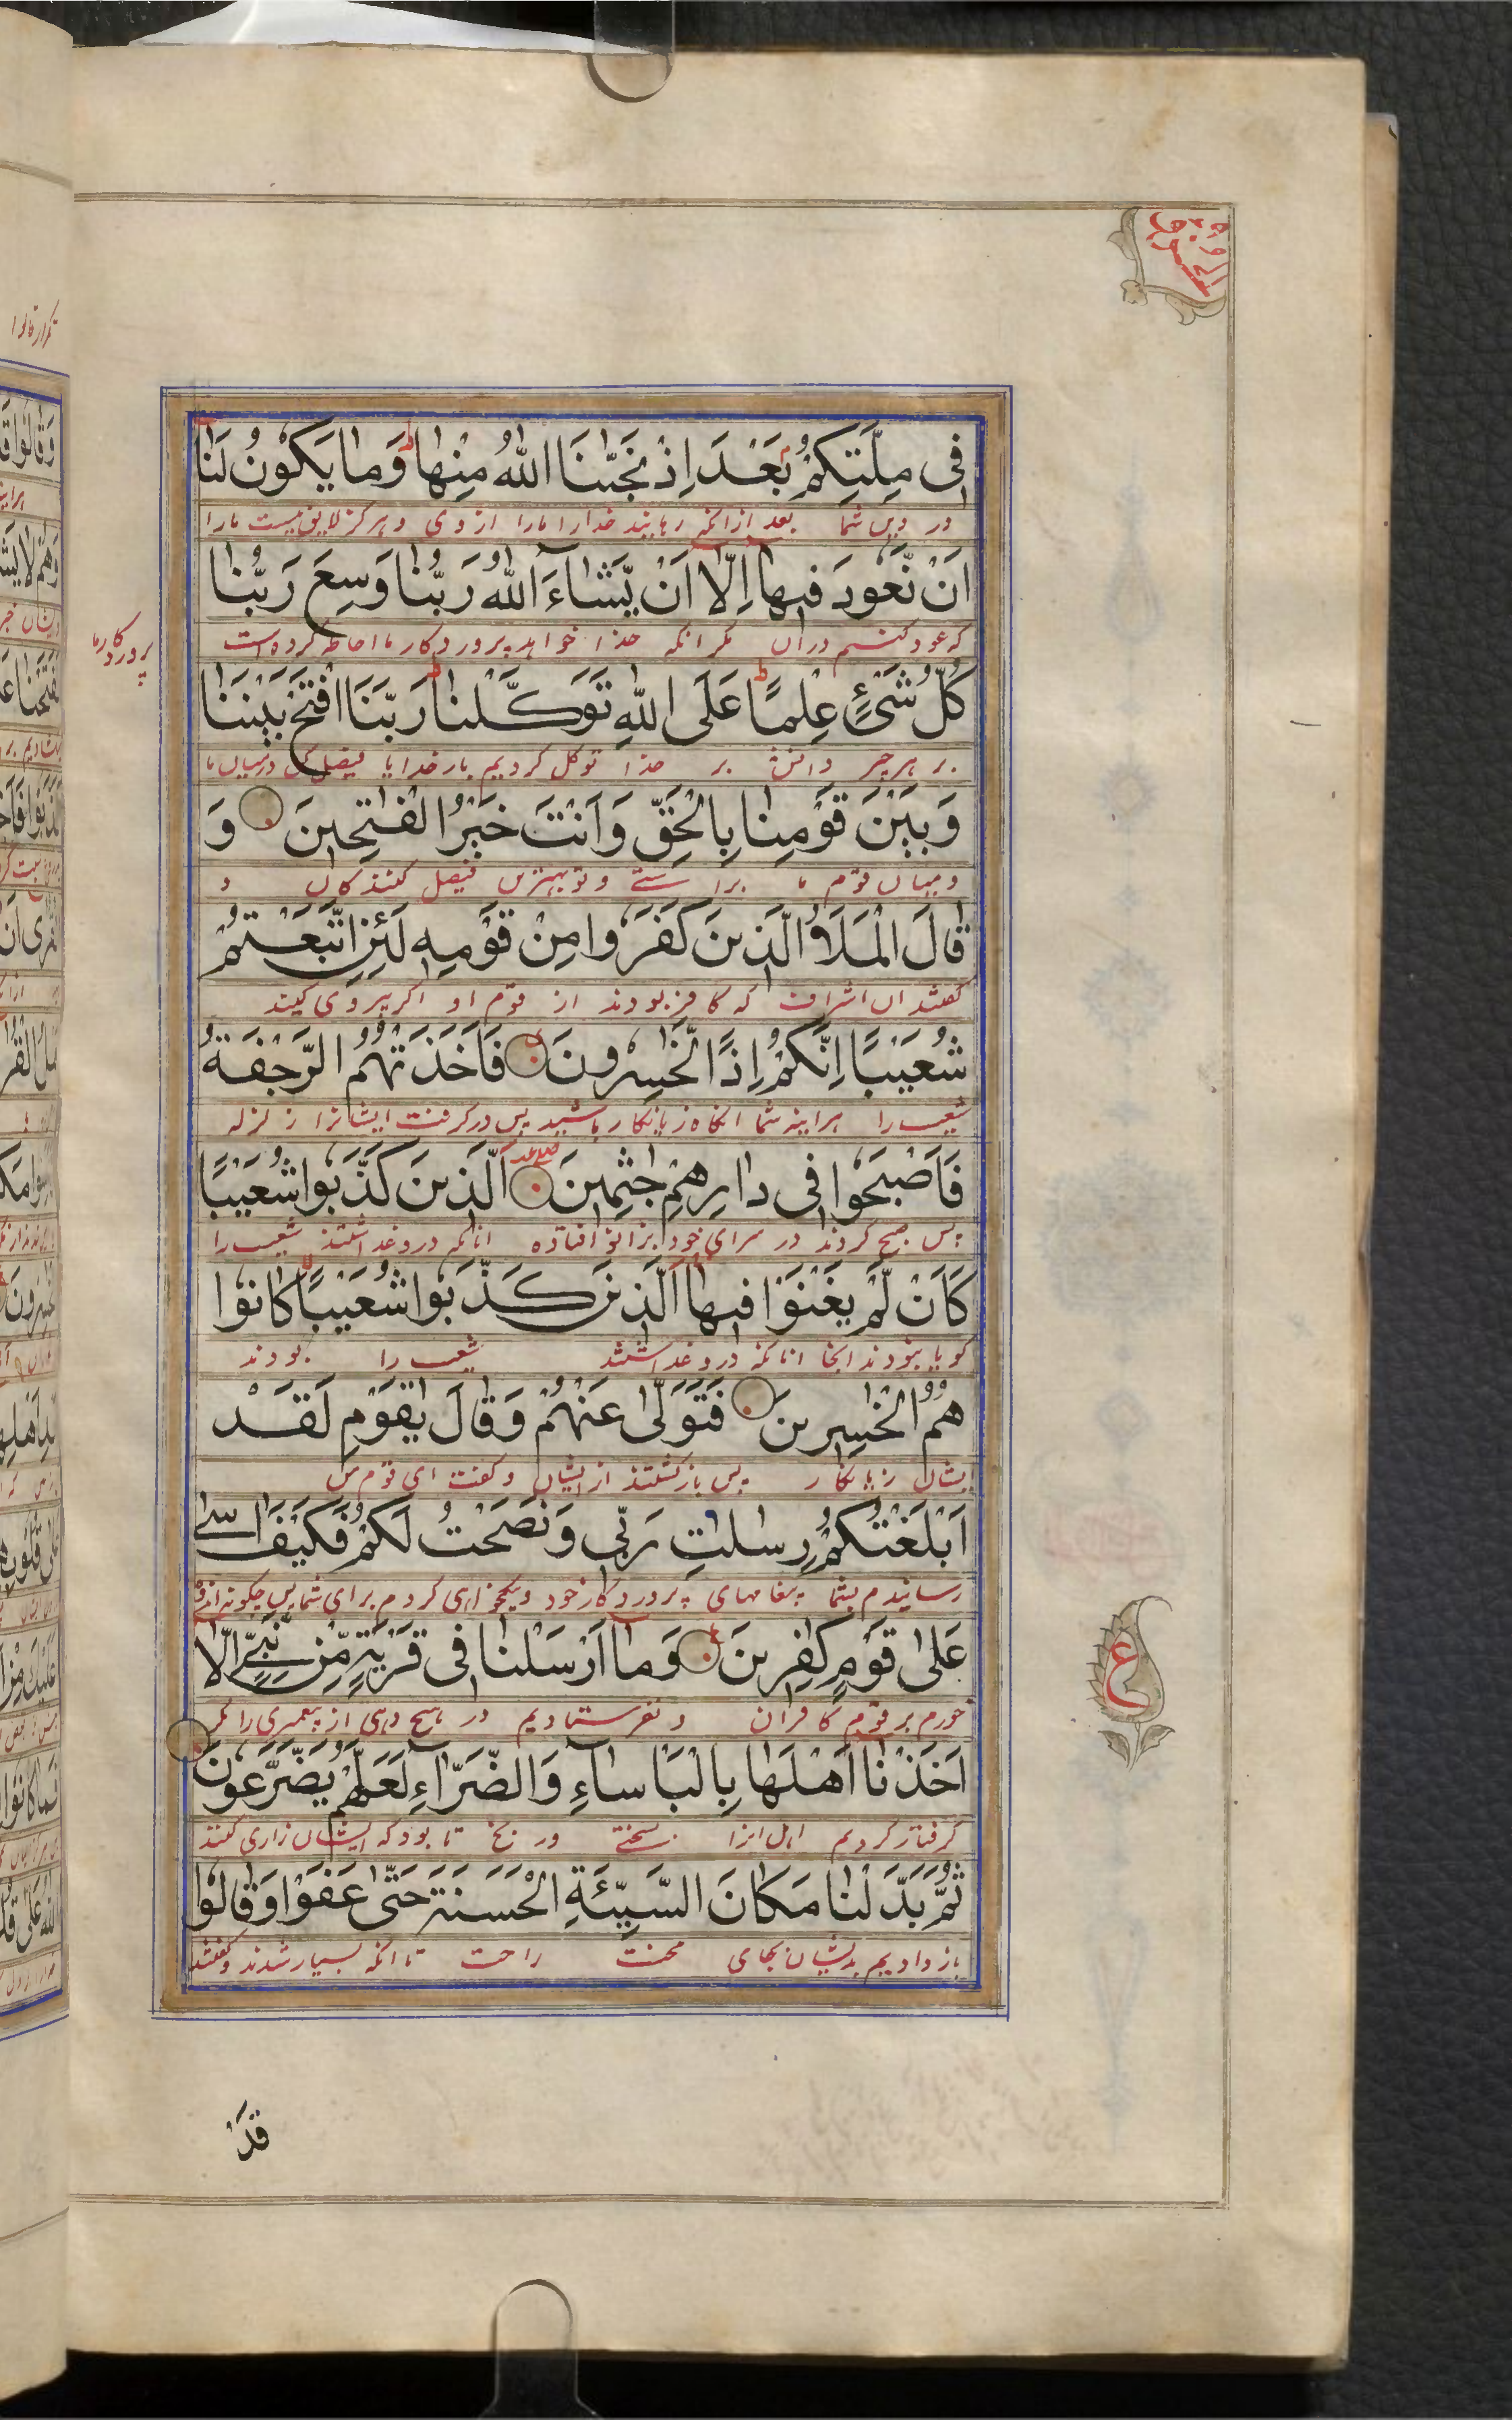 فِی مِلَّتِکُمْ بَعْدَ اِذْ نَجّٰىنَا اللّٰهُ مِنْهَا وَمَا یَکُوْنُ لَنَا
در دین شما بعد ازانکه رهانید خدا مارا ازوی و هرگز لایق نیست مارا
اَنْ نَّعُوْدَ فِیْهَا اِلَّا اَنْ یَّشَآءَ اللّٰهُ رَبُّنَا وَسِعَ رَبُّنَا
که عود کنیم دران مگر انکه خدا خواهد پروردکار ما احاطه کرده است
پروردکار ما
کُلَّ شَیْءٍ عِلْمًا عَلَی اللّٰهِ تَوَکَّلْنَا رَبَّنَا افْتَحْ بَیْنَنَا
بر هر چیز دانش بر خدا توکل کردیم بار خدایا فیصل کن درمیان ما
وَبَیْنَ قَوْمِنَا بِالْحَقِّ وَاَنْتَ خَیْرُ الْفٰتِحِیْنَ وَ
ومیان قوم ما براستی وتو بهترین فیصل کنندکان و
قَالَ الْمَلَاُ الَّذِیْنَ کَفَرُوْا مِنْ قَوْمِهٖ لَئِنِ اتَّبَعْتُمْ
کفتند ان اشراف که کافر بودند از قوم او اکر پیروی کنید
شُعَیْبًا اِنَّکُمْ اِذًا لَّخٰسِرُوْنَ فَاَخَذَتْهُمُ الرَّجْفَةُ
شعیب را هراینه شما انکاه زیانکار باشید پس درکرفت ایشانرا زلزله
فَاَصْبَحُوْا فِی دَارِهِمْ جٰثِمِیْنَ الَّذِیْنَ کَذَّبُوْا شُعَیْبًا
پس صبح کردند در سرای خود بزانو افتاده انانکه دروغ داشتند شعیب را
کَاَنْ لَّمْ یَغْنَوْا فِیْهَا اَلَّذِیْنَ کَذَّبُوْا شُعَیْبًا کَانُوْا
کویا نبودند انجا انانکه دروغ داشتند شعیب را بودند
هُمُ الْخٰسِرِیْنَ فَتَوَلّٰی عَنْهُمْ وَقَالَ یٰقَوْمِ لَقَدْ
ایشان زیانکار پس بازکشتند از ایشان وکفت ای قوم من
اَبْلَغْتُکُمْ رِسٰلٰتِ رَبِّی وَنَصَحْتُ لَکُمْ فَکَیْفَ اٰسٰی
رسانیدم بشما پیغامهای پروردکار خود ونیکخواهی کردم برای شما پس چکونه اندوه
عَلٰی قَوْمٍ کٰفِرِیْنَ وَمَا اَرْسَلْنَا فِی قَرْیَةٍ مِّنْ نَّبِیٍّ اِلَّا
خورم بر قوم کافران ونفرستادیم در هیچ دهی از پیغمبری را مکر
اَخَذْنَا اَهْلَهَا بِالْبَاْسَآءِ وَالضَّرَّآءِ لَعَلَّهُمْ یَضَّرَّعُوْنَ
کرفتار کردیم اهل انرا بسختی ورنج تا بود که ایشان زاری کنند
ثُمَّ بَدَّلْنَا مَکَانَ السَّیِّئَةِ الْحَسَنَةَ حَتّٰی عَفَوْا وَقَالُوْا
باز دادیم بدیشان بجای محنت راحت تا انکه بسیار شدند وکفتند
ع
قَدْ